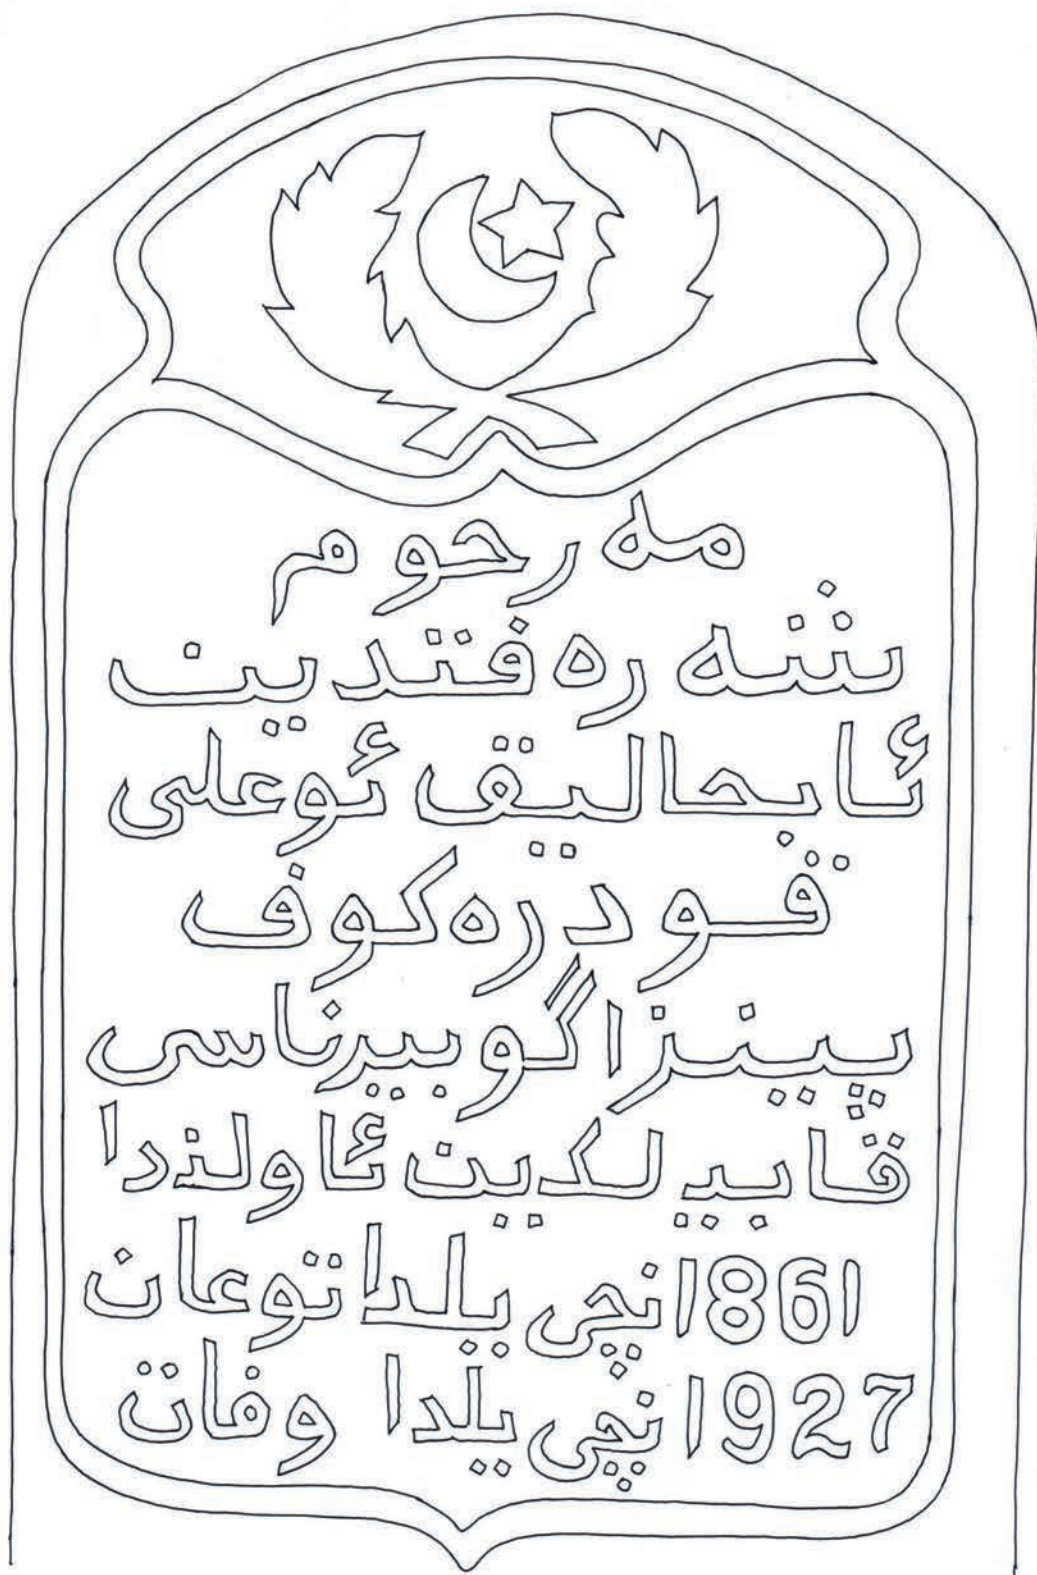 مەرحوم
شەرەفتدين
ئابحاليق ئوعلى
قودرەكوف
پينزا گوبيرناسى
قابيلدين ئاولندا
1861نچى يلدا توعان
1927نچى يلدا وفات